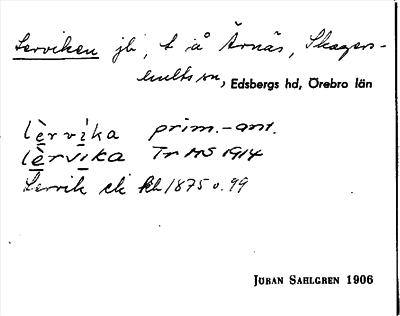 Lerviken jb, t å Årnäs, Skagers-
hults sn, Edsbergs hd, Örebro län
lèrvìka prim.-ant.
lèrvika Tr MS 1914
Lervik ek kb 1875 o. 99
JÖRAN SAHLGREN 1906